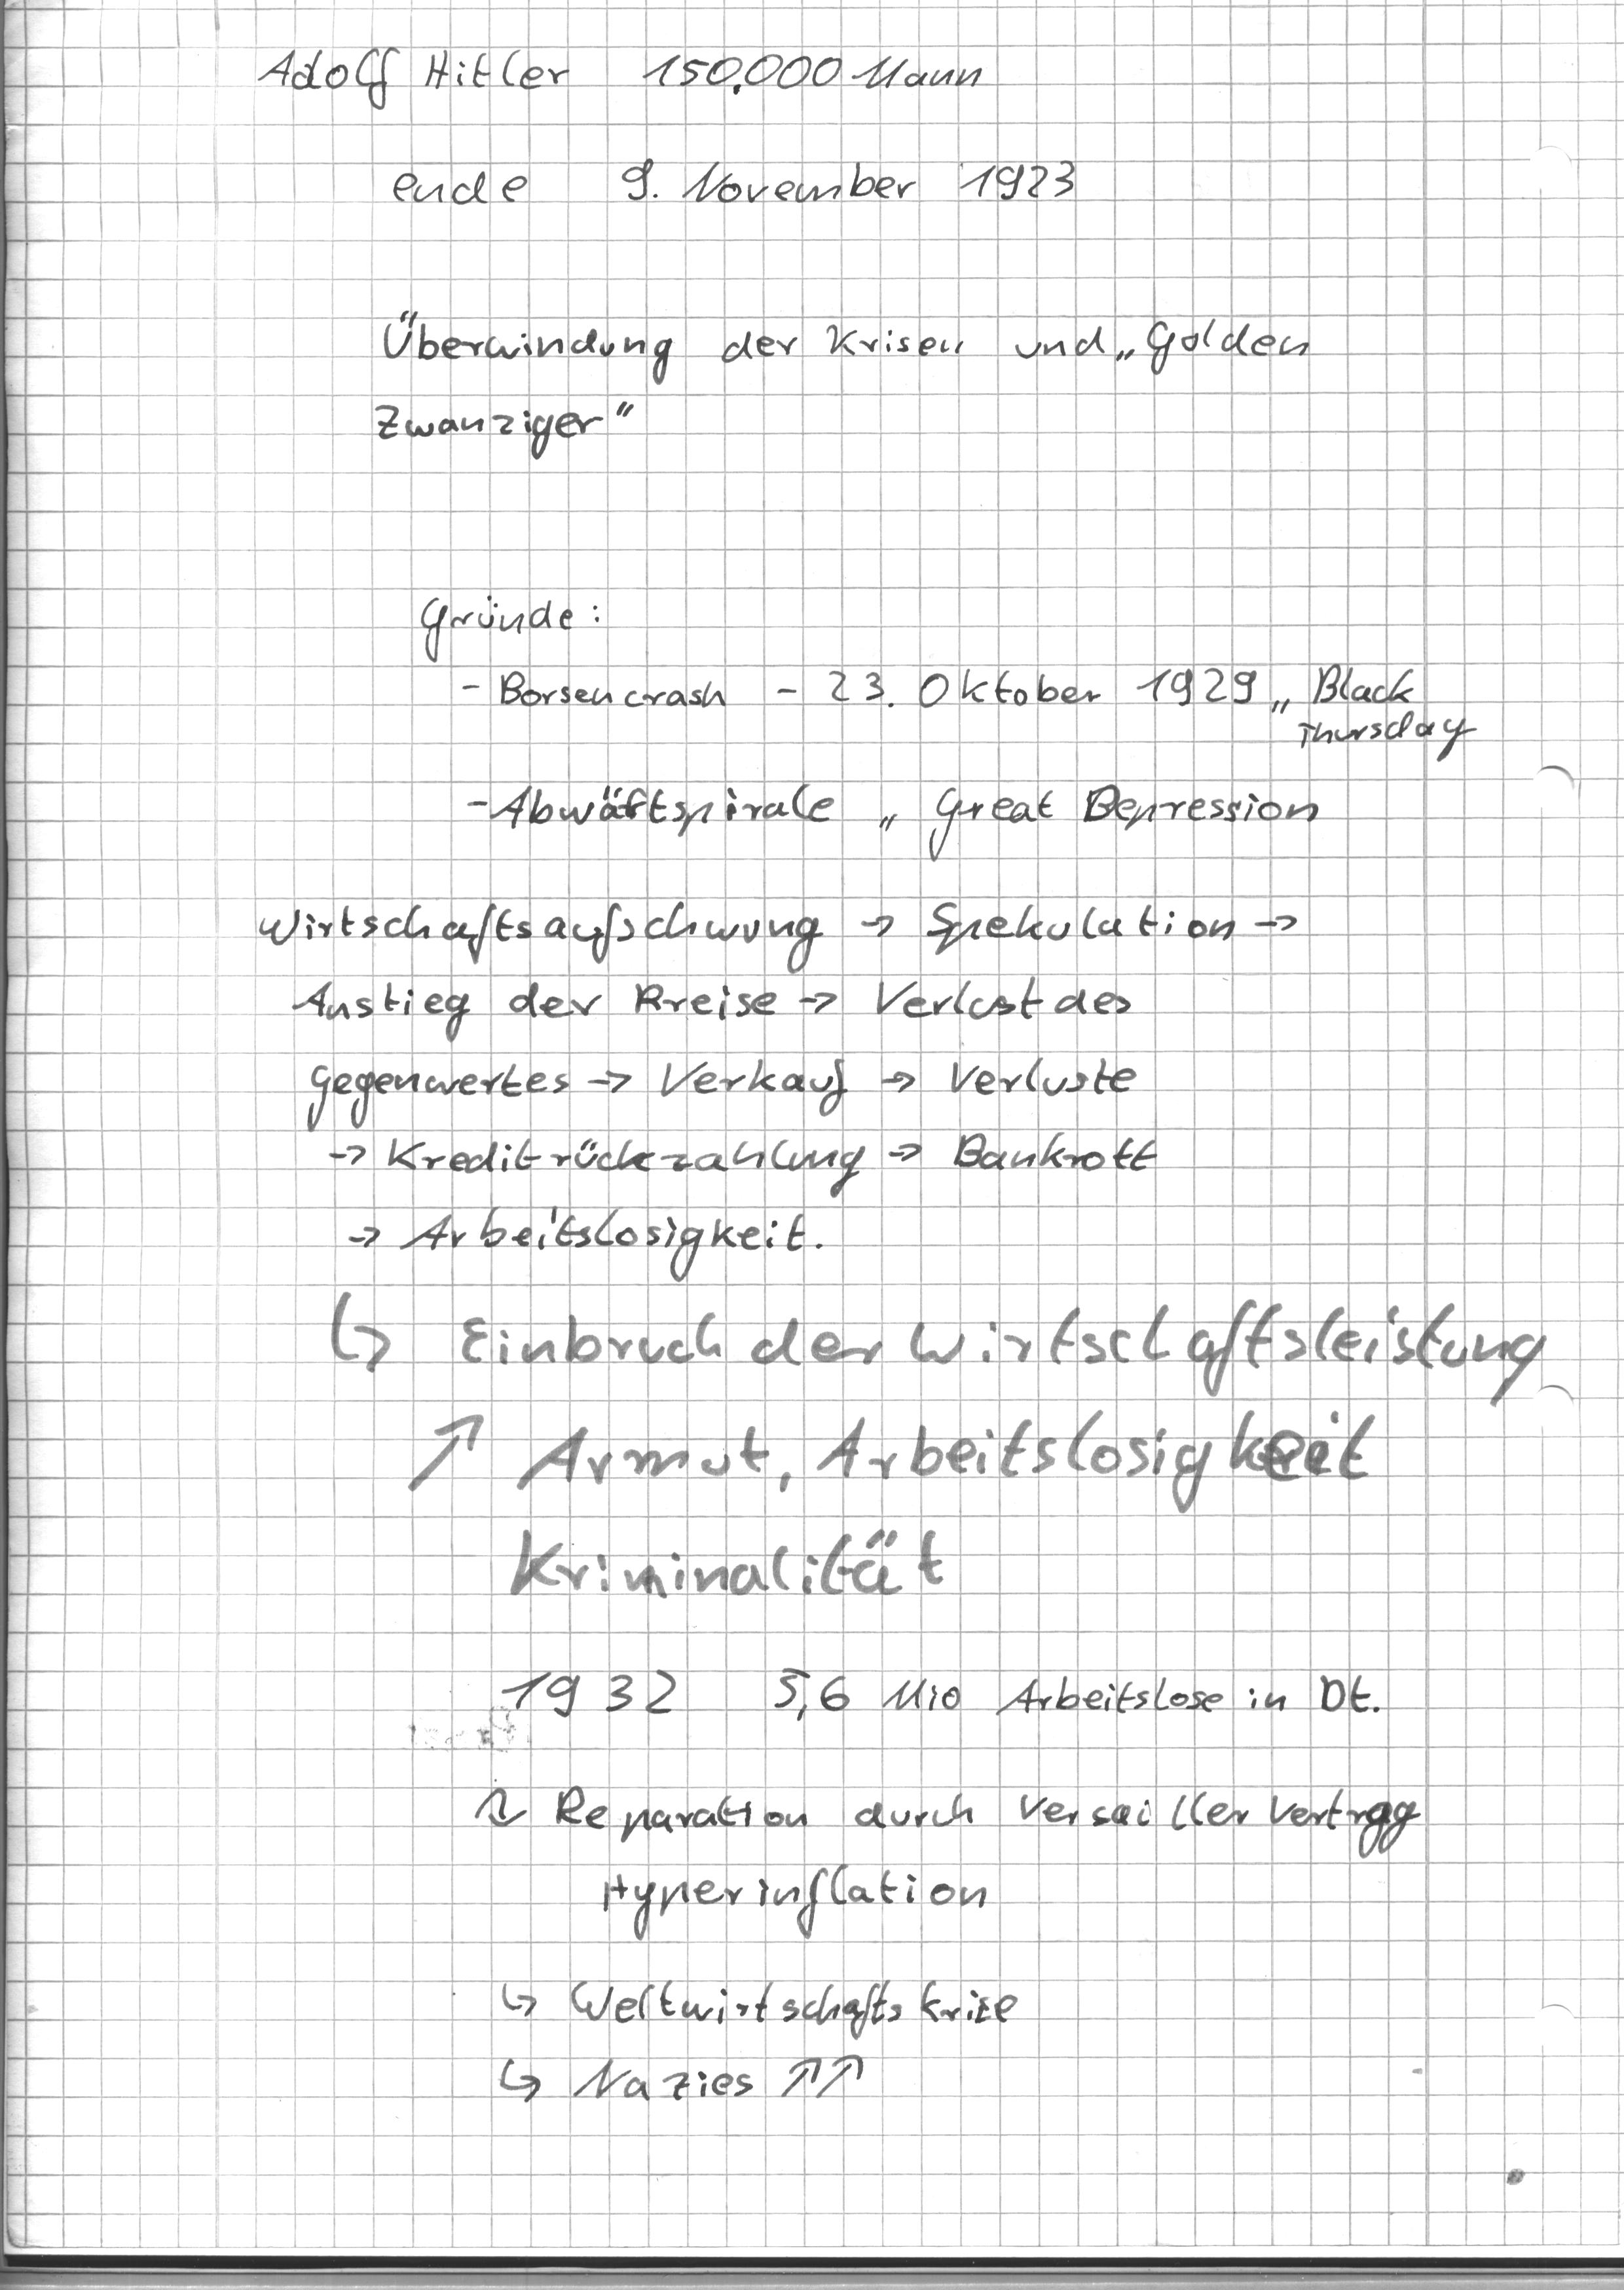 Adolf Hitler 150.000 Mann
ende 9. November 1923
Überwindung der Krisen und „Golden
Zwanziger"
Gründe:
- Borsencrash - 23. Oktober 1929 „Black
Thursday
- Abwärtspirale „Great Depression
Wirtschaftsaufschwung → Spekulation →
Anstieg der Preise → Verlust des
Gegenwertes → Verkauf → Verluste
→ Kreditrückzahlung → Bankrott
→ Arbeitslosigkeit.
↳ Einbruch der Wirtschaftsleistung
↗ Armut, Arbeitslosigkeit
Kriminalität
1932 5,6 Mio Arbeitslose in Dt.
Reparation durch Versailler Vertrag
Hyperinflation
↳ Weltwirtschaftskrise
↳ Nazies ↗↗